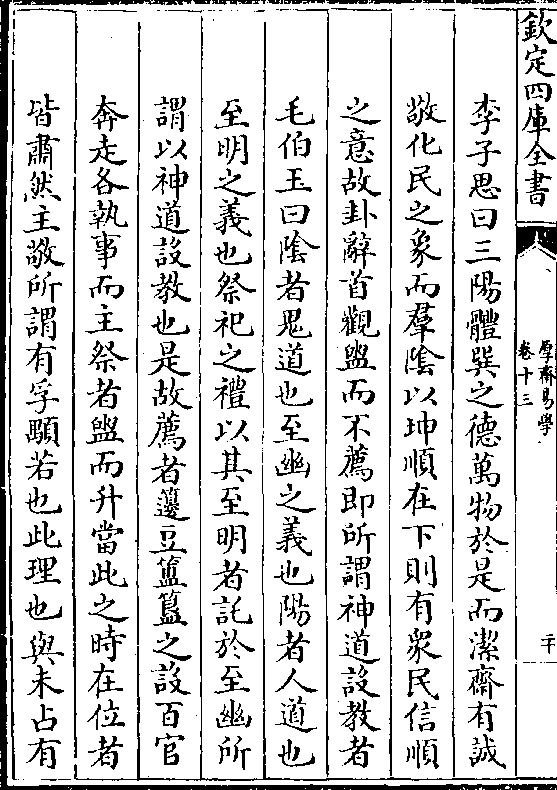 欽定四庫全書
厚齋易學
卷十三
二十
李子思曰三陽體巽之德萬物於是而潔齋有誠
敬化民之象而羣陰以坤順在下則有衆民信順
之意故卦辭首觀盥而不薦即所謂神道設教者
毛伯玉曰陰者鬼道也至幽之義也陽者人道也
至明之義也祭祀之禮以其至明者託於至幽所
謂以神道設教也是故薦者籩豆簠簋之設百官
奔走各執事而主祭者盥而升當此之時在位者
皆肅然主敬所謂有孚顒若也此理也與未占有